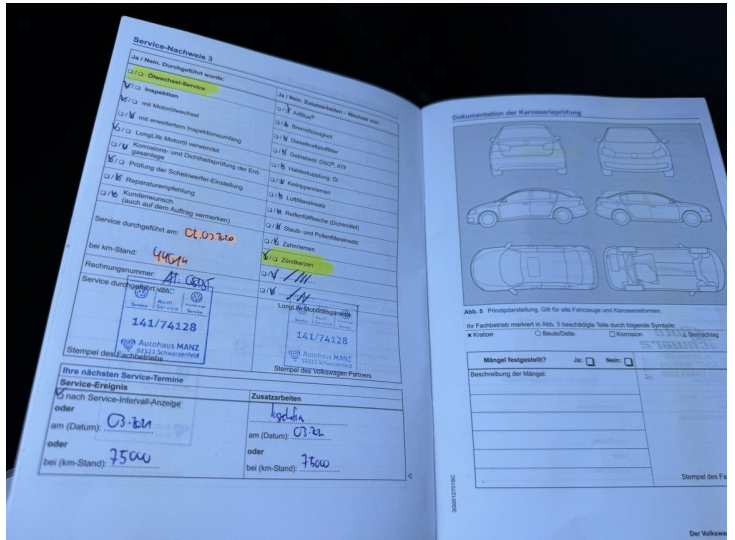 Service-Nachweis 3
Ja / Nein. Durchgeführt wurde:
Ölwechsel-Service
Inspektion
mit Motorölwechsel
mit erweitertem Inspektionsumfang
LongLife Motoröl verwendet
Korrosions- und Dichtheitsprüfung der Erd-
gasanlage
Prüfung der Scheinwerfer-Einstellung
Reparaturempfehlung
Kundenwunsch
(auch auf dem Auftrag vermerken)
Service durchgeführt am:
bei km-Stand: 44614
Rechnungsnummer:
Service durchgeführt von:
Service
Audi
Service
Service
141/74128
Autohaus MANZ
92521 Schwarzenfeld
Stempel des Fachbetriebs
Ja / Nein. Zusatzarbeiten – Wechsel von:
AdBlue®
Bremsflüssigkeit
Dieselkraftstofffilter
Getriebeöl: DSG®, ATF
Haldexkupplung: Öl
Keilrippenriemen
Luftfiltereinsatz
Reifenfüllflasche (Dichtmittel)
Staub- und Pollenfiltereinsatz
Zahnriemen
Zündkerzen
LongLife Mobilitätsgarantie
Service
Audi
Service
Service
141/74128
Autohaus MANZ
92521 Schwarzenfeld
Stempel des Volkswagen Partners
Ihre nächsten Service-Termine
Service-Ereignis
nach Service-Intervall-Anzeige
oder
am (Datum): 03.2021
oder
bei (km-Stand): 75000
Zusatzarbeiten
am (Datum):
oder
bei (km-Stand): 75000
Dokumentation der Karosserieprüfung
Abb. 5 Prinzipdarstellung, Gilt für alle Fahrzeuge und Karosserieformen.
Ihr Fachbetrieb markiert in Abb. 5 beschädigte Teile durch folgende Symbole:
x Kratzer
O Beule/Delle
Korrosion
△ Steinschlag
Mängel festgestellt? Ja: Nein:
Beschreibung der Mängel:
Stempel des Fa
3G0012701BC
Der Volkswa